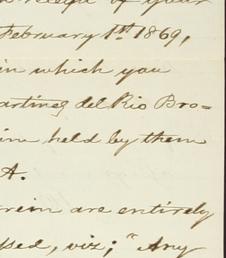 of your
February 1st 1869,
in which you
artinez del Rio Bro=
held by them
A.
are entirely
viz; " Any